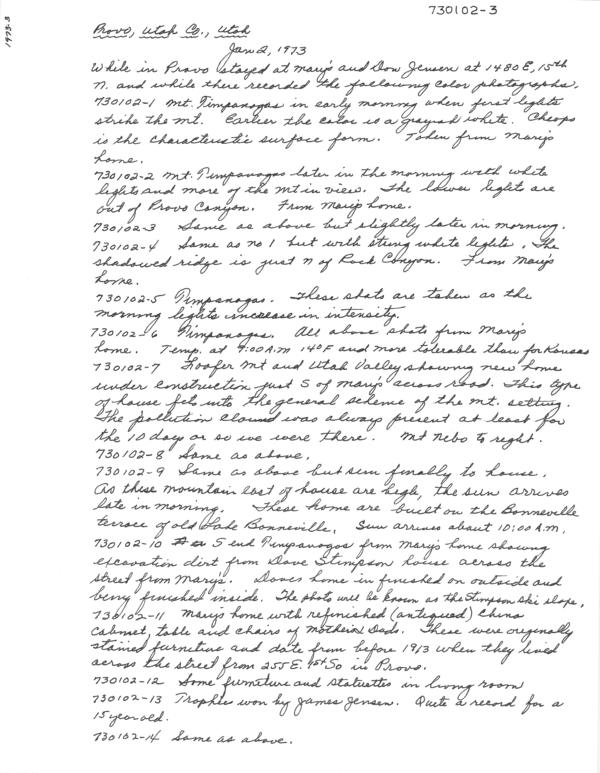 730102-3
1973-3
Provo, Utah Co., Utah
Jan 2, 1973
While in Provo stayed at Mary's and Don Jensen at 1480 E, 15th
N. and while there recorded the following color photographs.
730102-1 Mt. Timpanogas in early morning when first lights
strike the mt. Earlier the color is a grayish white. Cheops
is the characteristic surface form. Taken from Mary's
home.
730102-2 Mt. Timpanogas later in the morning with white
lights and more of the mt in view. The lower lights are
out of Provo Canyon. From Mary's home.
730102-3 Same as above but slightly later in morning.
730102-4 Same as no 1 but with strong white lights. The
shadowed ridge is just N of Rock Canyon. From Mary's
home.
730102-5 Timpanogas. These shots are taken as the
morning lights increase in intensity.
730102-6 Timpanogas. All above shots from Mary's
home. Temp. at 9:00 A.M 14°F and more tolerable than for Kansas
730102-7 Loafer Mt and Utah Valley showing new home
under construction just S of Mary's across road. This type
of house fits into the general scheme of the mt. setting.
The pollution cloud was always present at least for
the 10 day or so we were there. Mt Nebo to right.
730102-8 Same as above.
730102-9 Same as above but sun finally to house.
As these mountain east of house are high, the sun arrives
late in morning. These home are built on the Bonneville
terrace of old Lake Bonneville. Sun arrives about 10:00 A.M.
730102-10 S end Timpanogos from Mary's home showing
excavation dirt from Dave Stimpson house across the
street from Mary's. Daves home in finished on outside and
being finished inside. The photo will be known as the Stimpson ski slope.
730102-11 Mary's home with refinished (antiqued) China
cabinet, table and chairs of Mother and Dads. These were originally
stained furniture and date from before 1913 when they lived
across the street from 255 E. 1st So in Provo.
730102-12 Some furniture and statuettes in living room
730102-13 Trophies won by James Jensen. Quite a record for a
15 year old.
730102-14 Same as above.